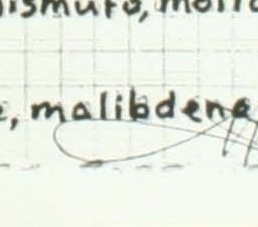 ismuto, moli
e, malibdena